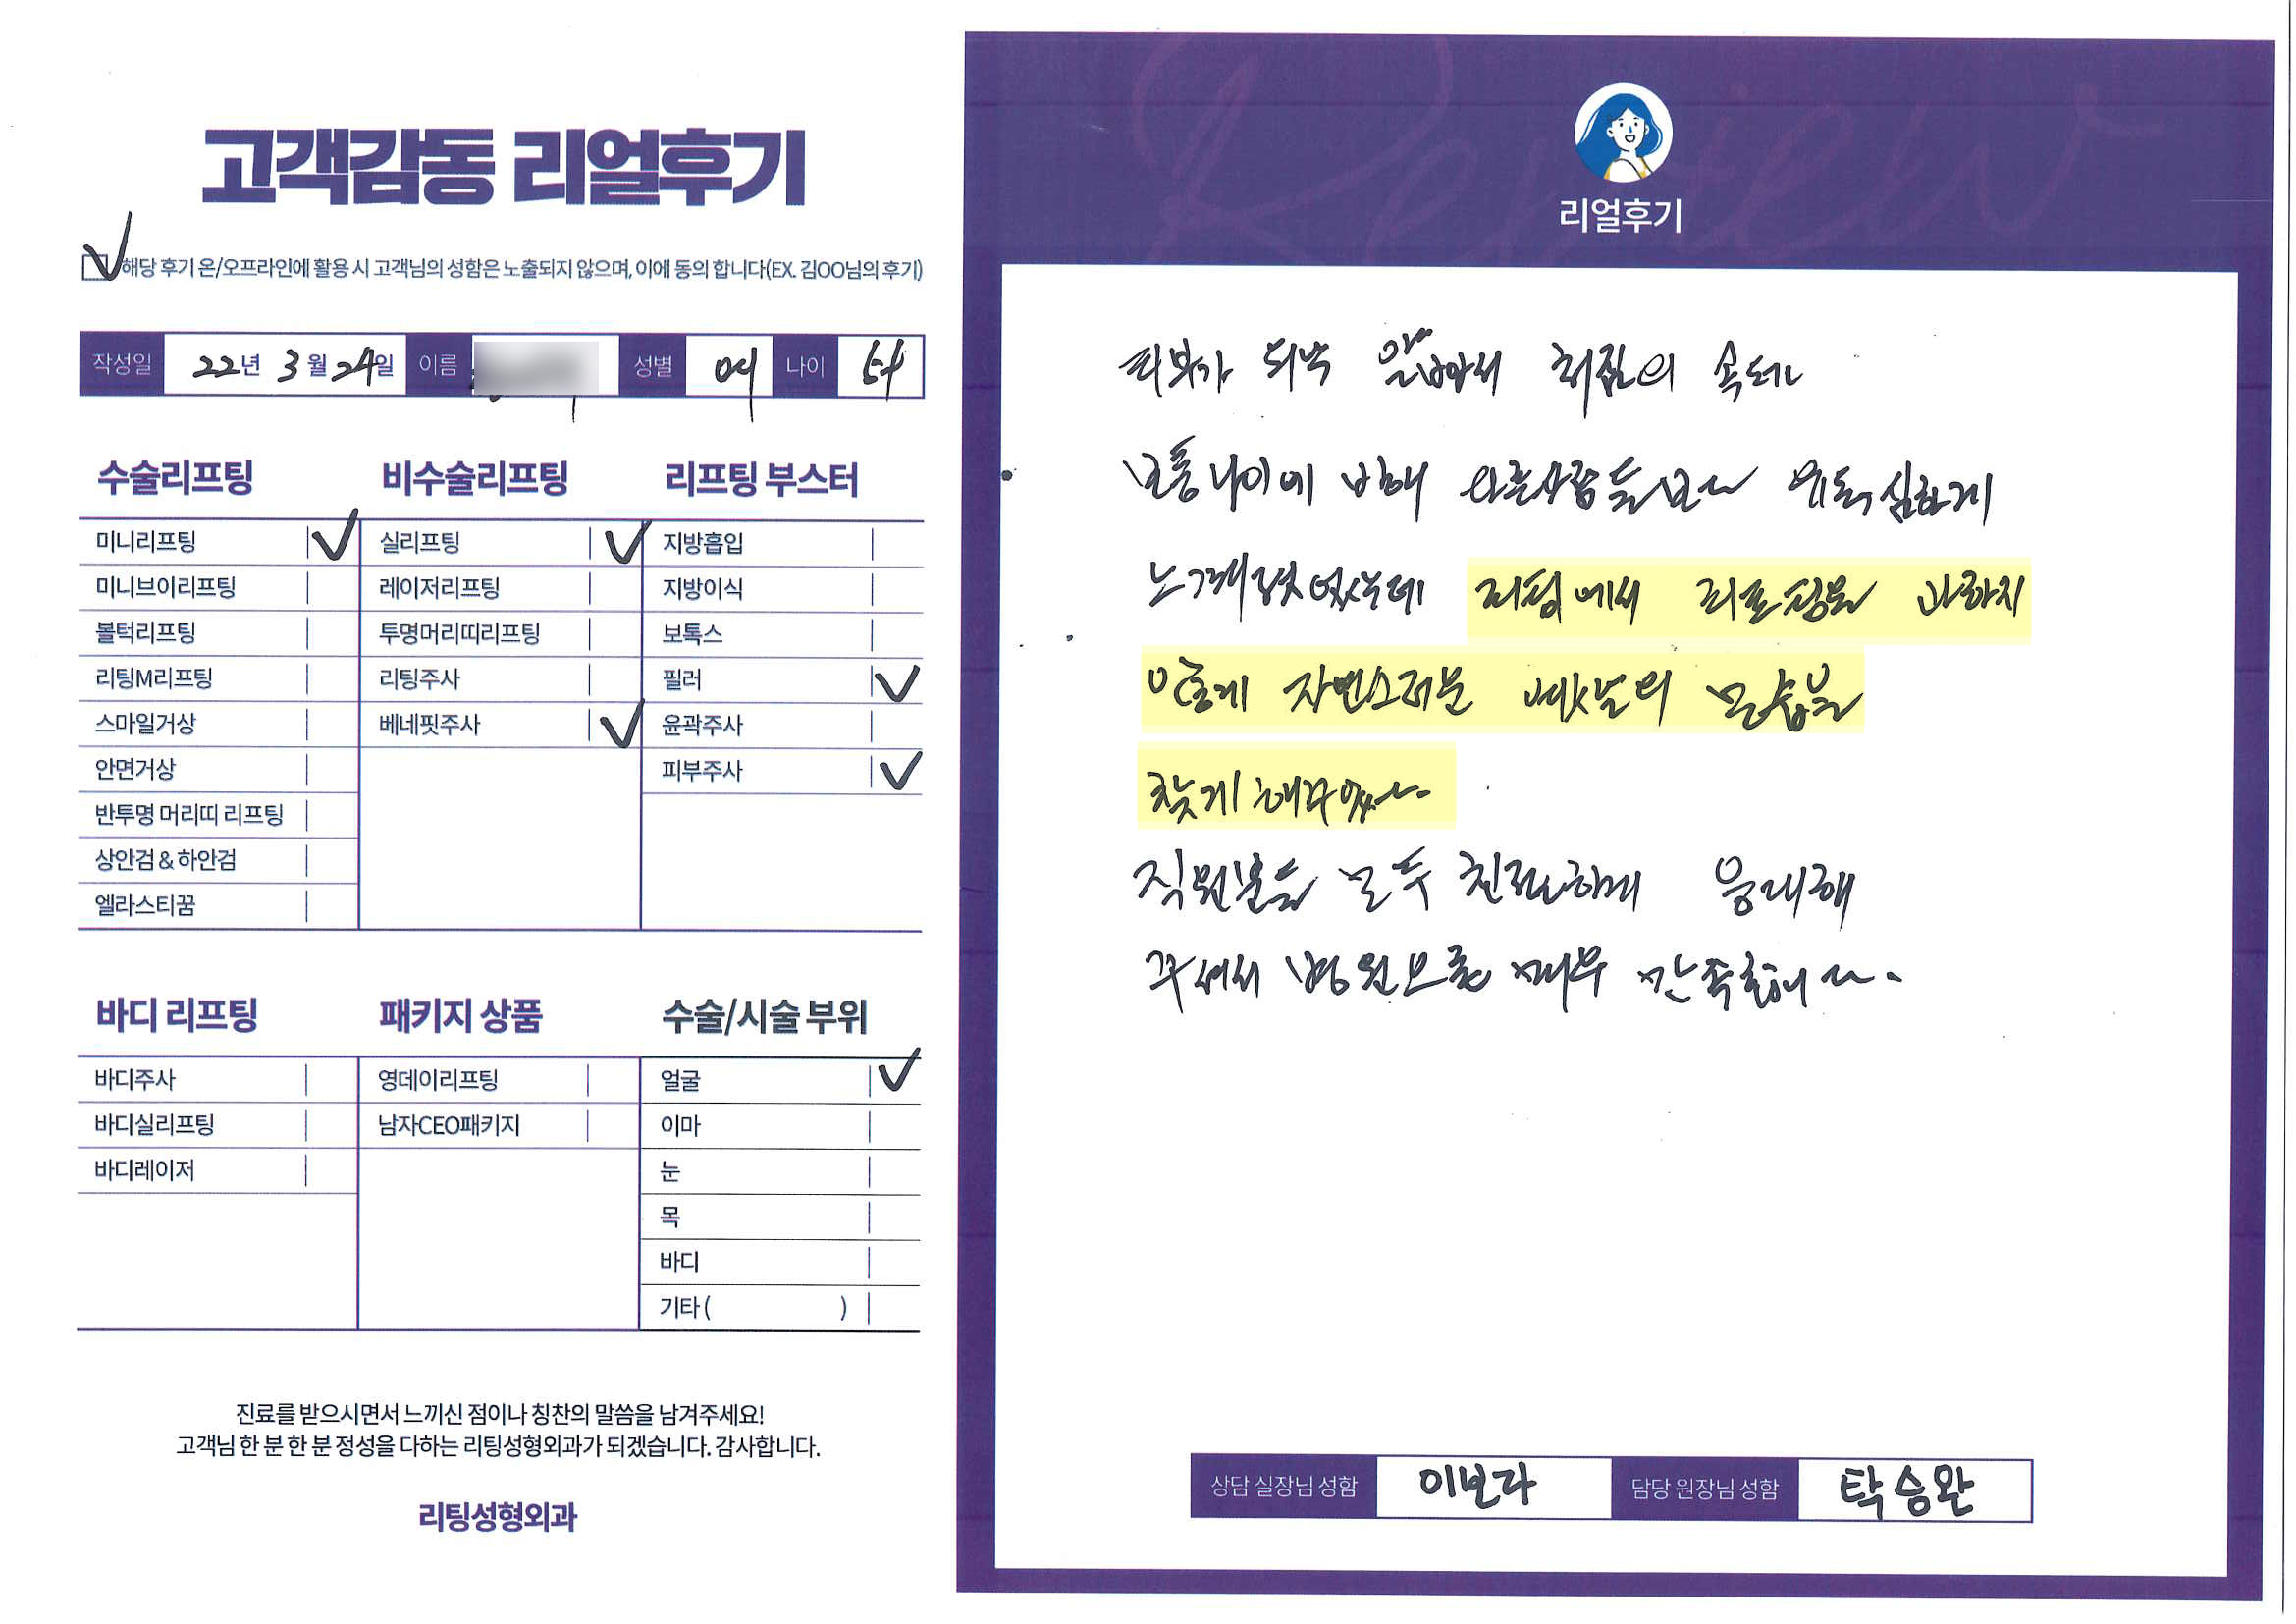 고객감동 리얼후기
해당 후기 온/오프라인에 활용 시 고객님의 성함은 노출되지 않으며, 이에 동의 합니다(EX. 김OO님의 후기)
작성일 22년 3월 24일 이름 성별 여 나이 54
수술리프팅
미니리프팅
미니브이리프팅
볼턱리프팅
리팅M리프팅
스마일거상
안면거상
반투명 머리띠 리프팅
상안검 & 하안검
엘라스티꿈
비수술리프팅
실리프팅
레이저리프팅
투명머리띠리프팅
리팅주사
베네핏주사
리프팅 부스터
지방흡입
지방이식
보톡스
필러
윤곽주사
피부주사
바디 리프팅
바디주사
바디실리프팅
바디레이저
패키지 상품
영데이리프팅
남자CEO패키지
수술/시술 부위
얼굴
이마
눈
목
바디
기타 ( )
진료를 받으시면서 느끼신 점이나 칭찬의 말씀을 남겨주세요!
고객님 한 분 한 분 정성을 다하는 리팅성형외과가 되겠습니다. 감사합니다.
리팅성형외과
Review
리얼후기
피부가 워낙 얇아서 처짐의 속도는
보통나이에 비해 다른사람들보다 유독 심하게
느껴졌었는데 리팅에서 리프팅을 과하지
않게 자연스러운 옛날의 모습을
찾게 해주었다.
직원분들 모두 친절하게 응대해
주셔서 병원으로 매우 만족합니다.
상담 실장님 성함 이보다 담당 원장님 성함 탁승완